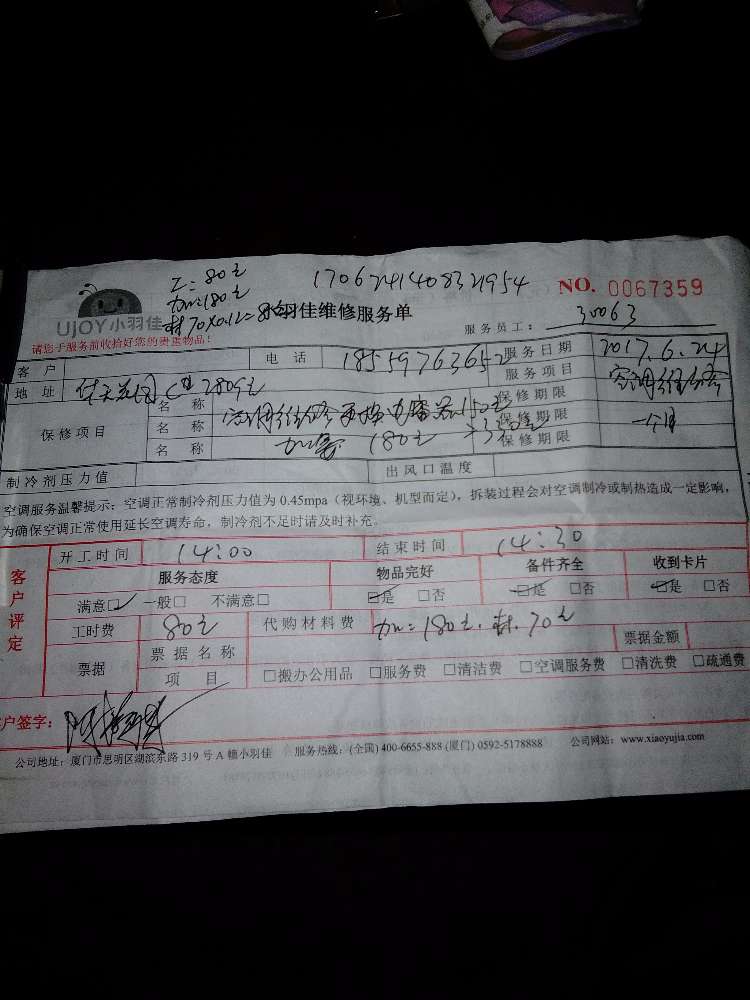 工:80元
1706241408321954
NO. 0067359
加:180元
UjOY小羽佳
材70X0.12=8
小羽佳维修服务单
服务员工: 30063
请您于服务前收拾好您的贵重物品!
客户 电话 18559763652 服务日期 2017.6.24
地址 2809 服务项目 空调维修
保修项目
名称 空调维修更换电容器150元 保修期限
名称 加氟 180元 保修期限 一个月
名称 保修期限
制冷剂压力值 出风口温度
空调服务温馨提示:空调正常制冷剂压力值为 0.45mpa(视环境、机型而定),拆装过程会对空调制冷或制热造成一定影响,
为确保空调正常使用延长空调寿命,制冷剂不足时请及时补充。
客户评定
开工时间 14:00 结束时间 14:30
服务态度 物品完好 备件齐全 收到卡片
满意☑ 一般□ 不满意□ ☑是 □否 ☑是 □否 ☑是 □否
工时费 80元 代购材料费 加:180元. 材.70元
票据 票据名称 票据金额
项目 □搬办公用品 □服务费 □清洁费 □空调服务费 □清洗费 □疏通费
客户签字:
公司地址:厦门市思明区湖滨东路 319 号 A 幢小羽佳 服务热线:(全国) 400-6655-888 (厦门) 0592-5178888 公司网站:www.xiaoyujia.com